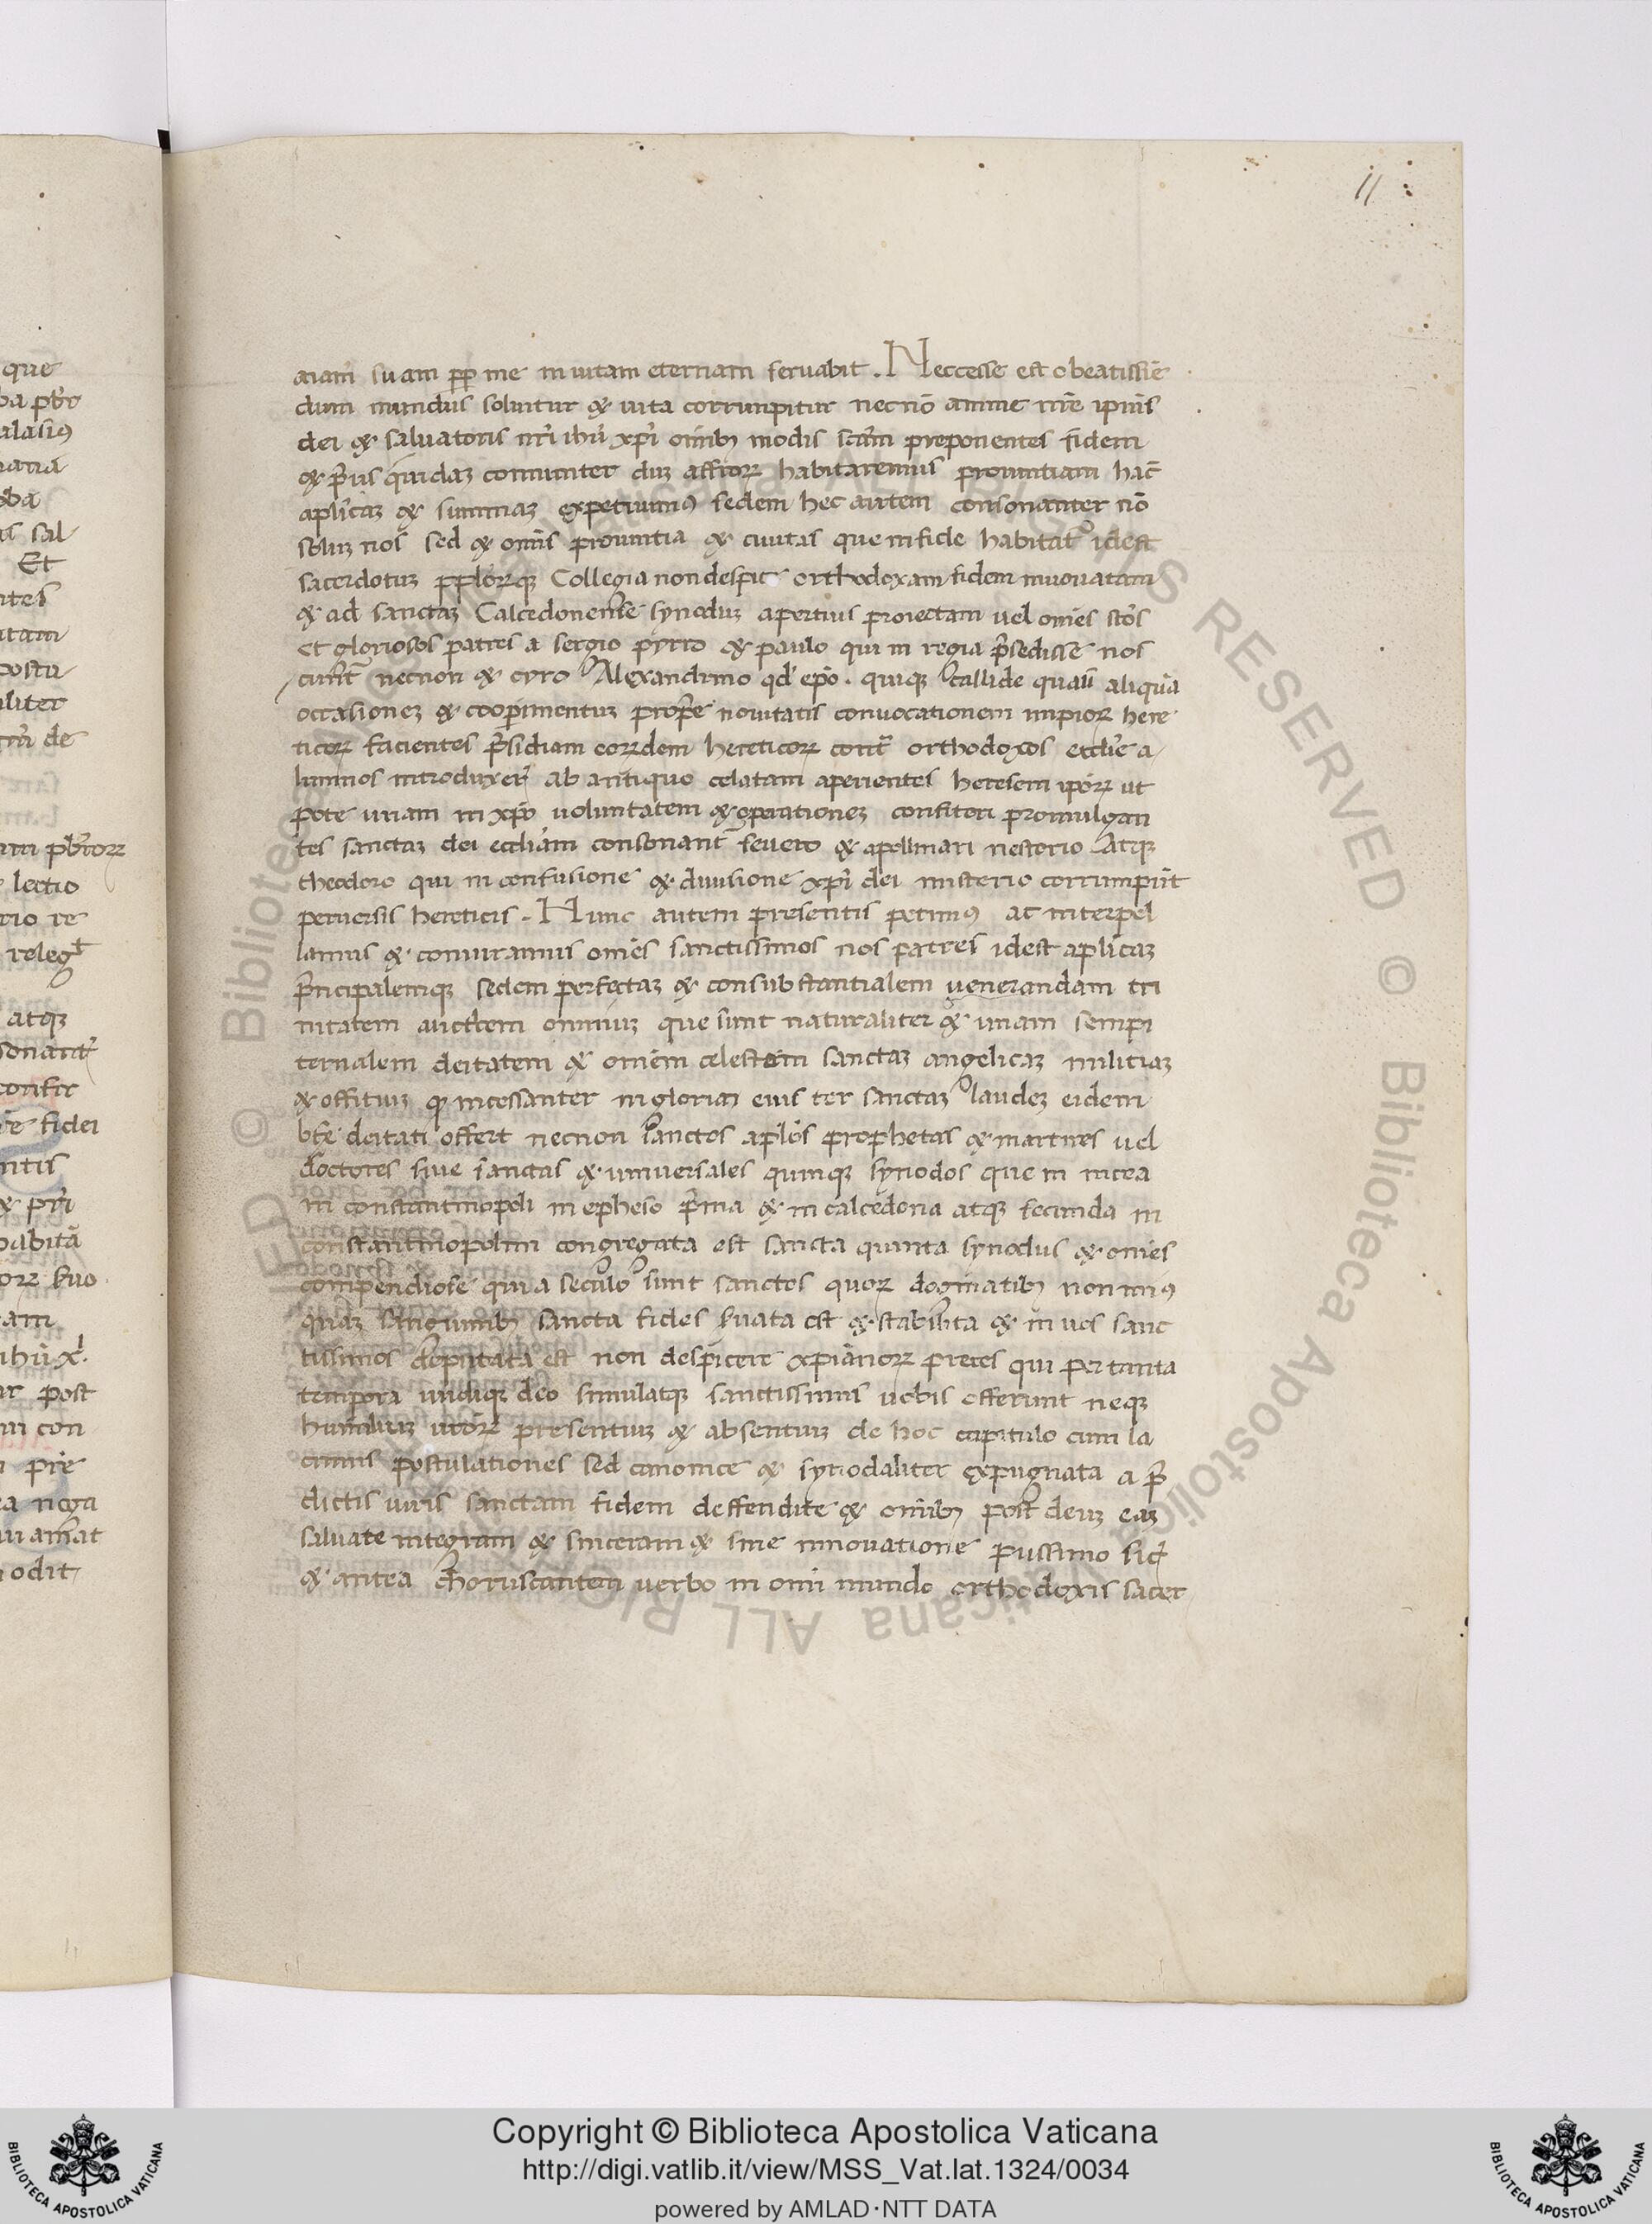 11
aiam̃ suam ꝓp me in vitam eternam servabit. Neccesse est o beatissĩe
dum mundus solvitur & vita corrumpitur necnõ anime nr̃e ipsius
dei & salvatoris nr̃i ihũ xp̃i om̃ib; modis scãm preponentes fidem
& p̃us quidaʒ comuniter duʒ affrorꝝ habitaremus provintiam hãc
aplicaʒ & summaʒ expetivimꝰ sedem hec autem consonanter nõ
soluʒ nos sed & om̃is provintia & civitas que in fide habitat̃ idest
sacerdotuʒ ꝓplorꝝqʒ Collegia non despic orthodoxam fidem innovatam
& ad sanctaʒ Calcedonense synoduʒ apertius proiectam vel om̃es sc̃os
Et gloriosos patres a sergio pyrro & paulo qui in regia p̃sedisse nos
cunt̃ necnon & cyro Alexandrino qd̃ ep̃o. quiqʒ callide quaũ aliquã
occasioneʒ & cooperimentuʒ proprie novitatis convocationem impiorꝝ here
ticorꝝ facientes p̃sidiam eorꝝdem hereticorꝝ cont̃ orthodoxos eccl̃ie a
lumnos introduxer̃ ab antiquo celatam aperientes heresem ip̃orꝝ ut
pote unam in xp̃o voluntatem & operationeʒ confiteri promulgan
tes sanctaʒ dei eccl̃iam consonant̃ severo & apollinari nestorio Atqʒ
theodoro qui in confusione & divisione xp̃i dei misterio corrumpũt
perversis hereticis. Nunc autem presentis petimꝰ ac interpel
lamus & coniuramus om̃es sanctissimos nos patres idest aplicaʒ
p̃ncipalemqʒ sedem perfectaʒ & consubstantialem venerandam tri
nitatem auctorem omniuʒ que sunt naturaliter & unam sempi
ternalem deitatem & om̃em celestem sanctaʒ angelicaʒ militiaʒ
& offitiuʒ qʒ incessanter in gloriaʒ eius ter sanctaʒ laudeʒ eidem
bt̃e deitati offert necnon sanctos apl̃os prophetas & martires vel
doctores sive sanctas & universales quinqʒ synodos que in nicea
in constantinopoli in epheso p̃ma & in calcedona atqʒ secunda in
constantinopolim congregata est sancta quinta synodus & om̃es
compendiose qui a seculo sunt sanctos quorꝝ dogmatib; non minꝰ
quaʒ sanguinib; sancta fides s̃vata est & stabilita & in vos sanc
tissimos deputata est non despicere xp̃ianorꝝ preces qui per tanta
tempora undiqʒ deo simulatqʒ sanctissimis vobis offerunt neqʒ
humiliuʒ virorꝝ presentiuʒ & absentiuʒ de hoc capitulo cum la
crimis postulationes sed canonice & synodaliter expugnata a p̃
dictis viris sanctam fidem deffendite & om̃ib; post deuʒ eaʒ
salvate integram & sinceram & sine innovatione piissimo sic̃
& antea choruscantem verbo in om̃i mundo orthodoxis sacer
Copyright © Biblioteca Apostolica Vaticana
http://digi.vatlib.it/view/MSS_Vat.lat.1324/0034
powered by AMLAD·NTT DATA
BIBLIOTECA APOSTOLICA VATICANA
BIBLIOTECA APOSTOLICA VATICANA